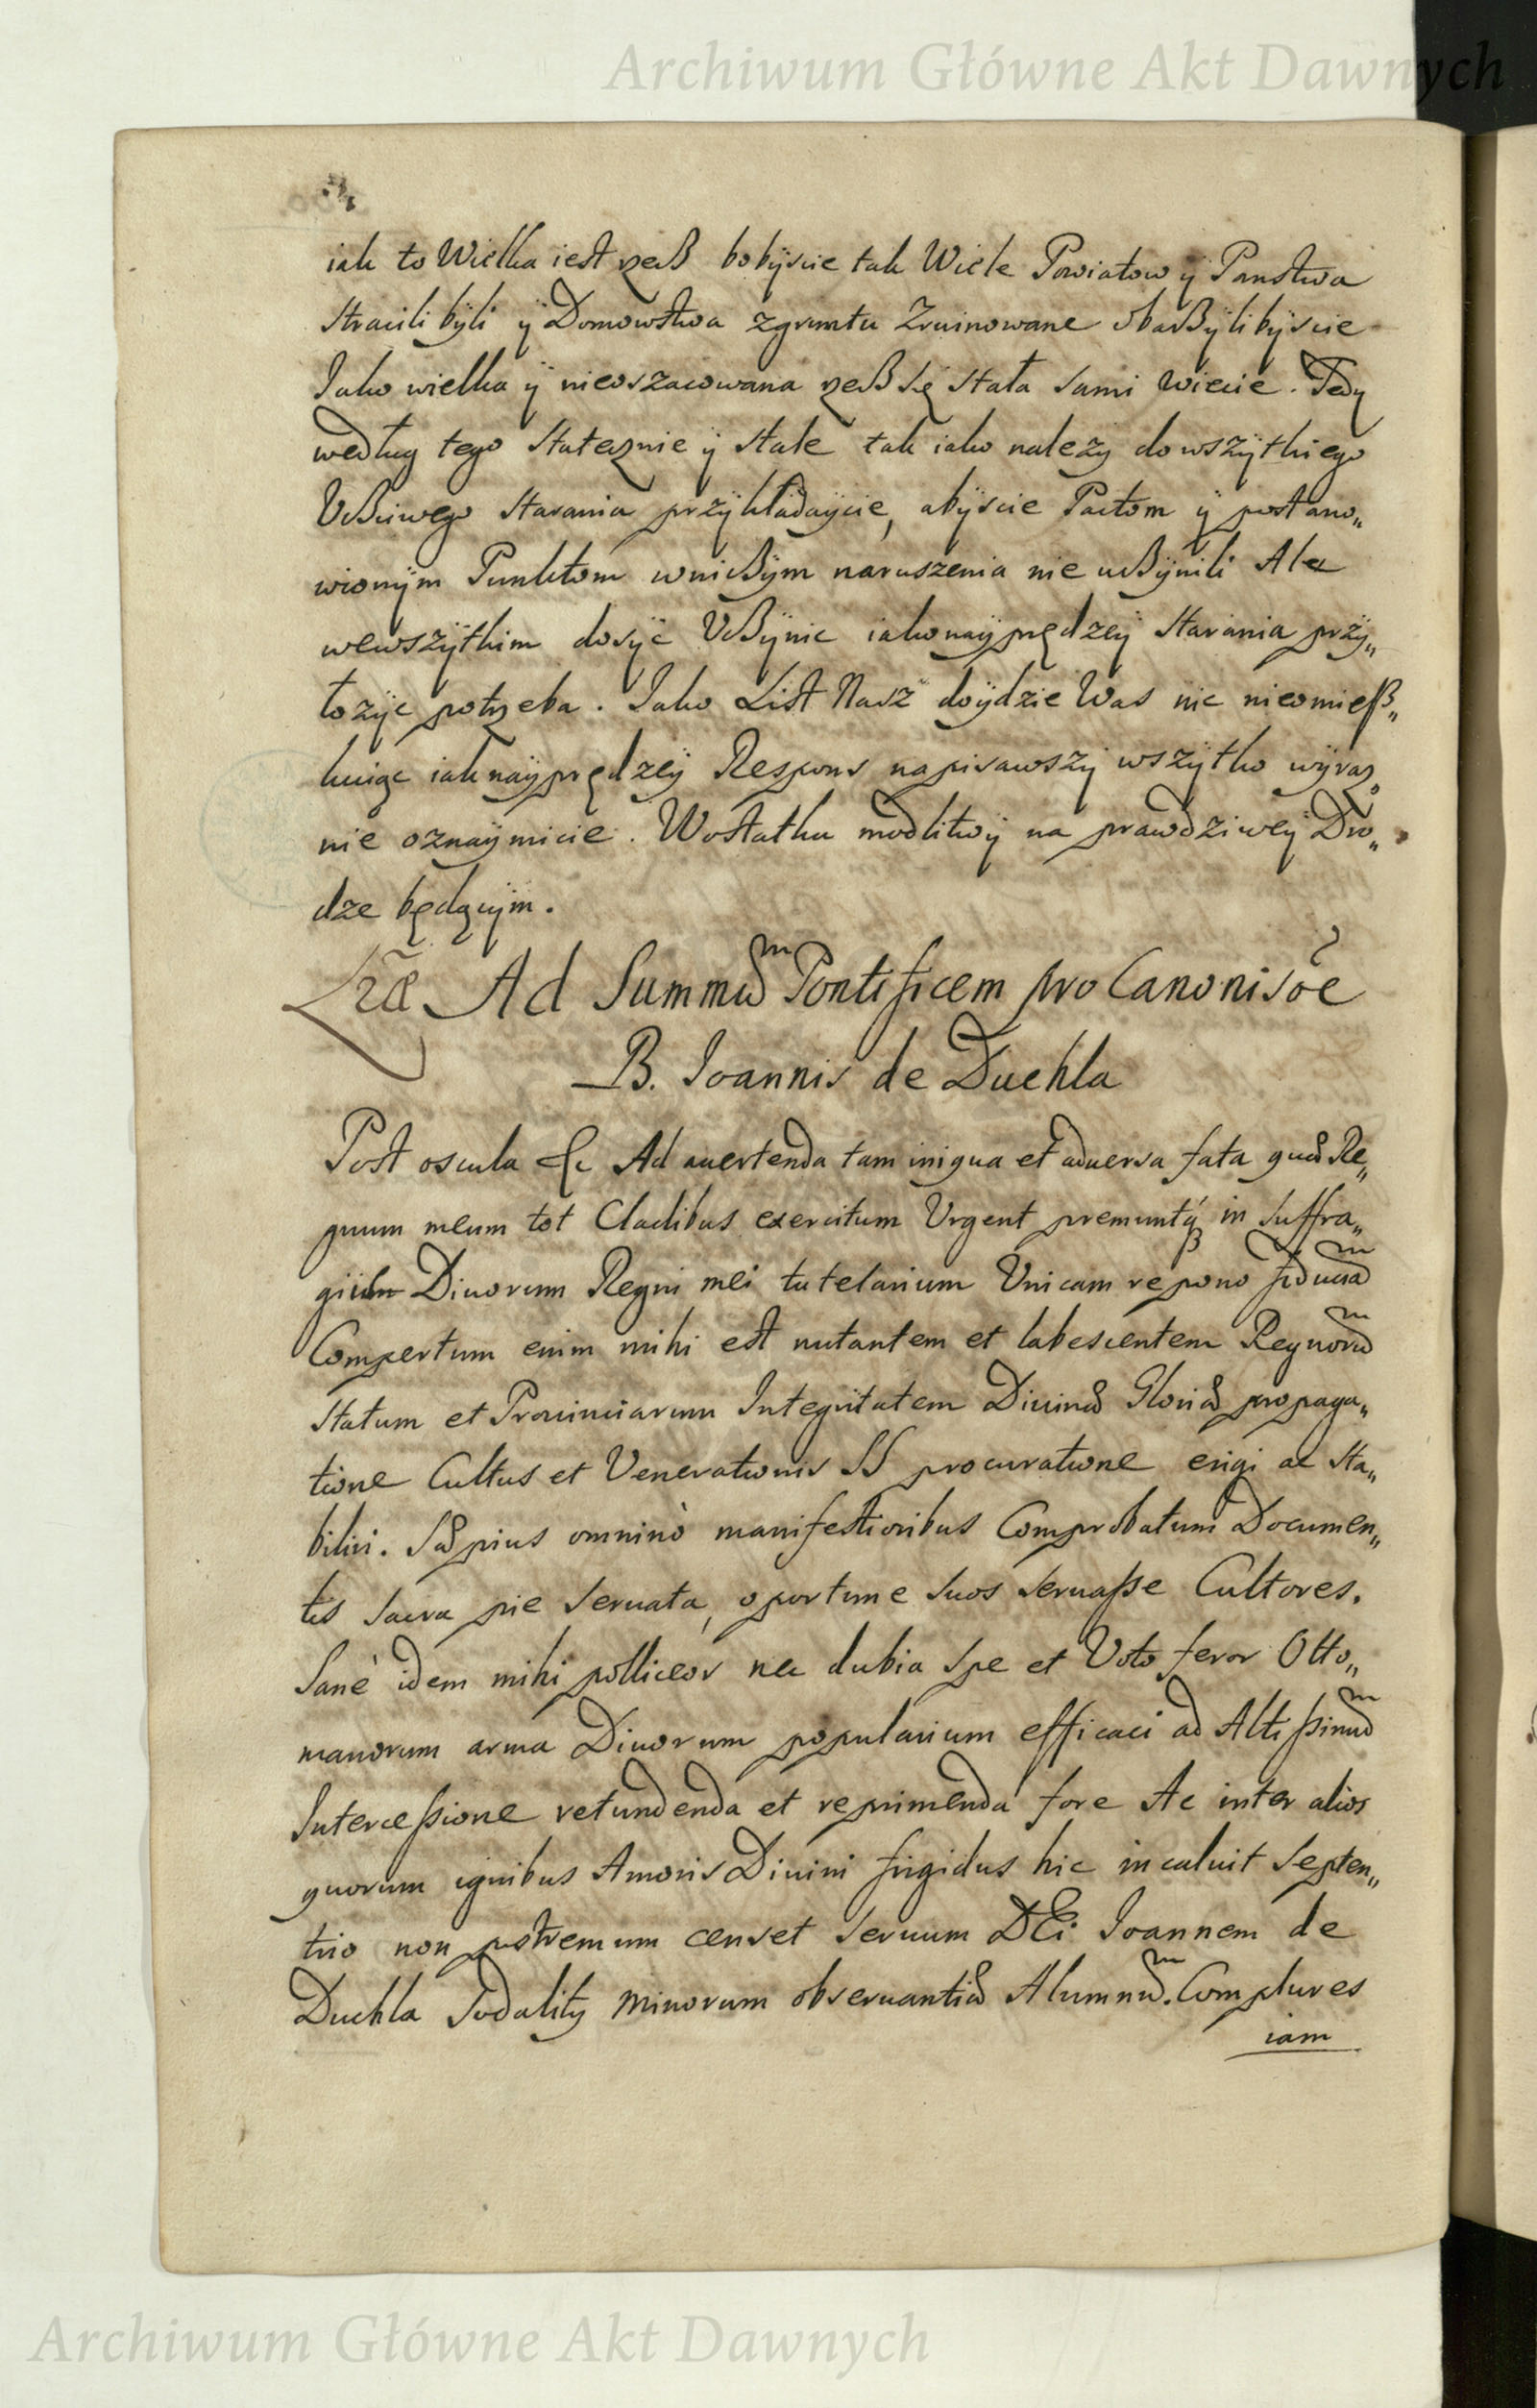 Archiwum Główne Akt Dawnych
iak to Wielka iest rzecß bobÿscie tak Wiele Powiatow ÿ Panstwa
stracili bÿli ÿ Domowstwa zgruntu Zruinowane obacßÿlibÿscie
Iako wielka ÿ nieoszacowana rzecß się stała sami wiecie. Tedy
według tego statecznie ÿ stale tak iako należÿ do wszÿtkiego
Vcßciwego starania przÿkładaÿcie, abÿscie Pactom ÿ postano„
wionÿm Punktom wnicßÿm naruszenia nie ucßÿnili Ale
wewszÿtkim dosÿc Vcßÿnic iakonaÿprędzeÿ starania przÿ„
łożÿc potrzeba. Iako List Nasz doÿdzie Was nic nieomieß„
kuiąc iak naÿprędzeÿ Respons napisawszÿ wszÿtko wÿraz„
nie oznaÿmicie. Wostatku modlitwÿ na prawdziweÿ Dro„
dze będącÿm.
Lræ Ad Summũ Pontificem pro Canonisõe
B. Ioannis de Duckla
Post oscula &c Ad auertenda tam iniqua et aduersa fata quæ Re„
gnum meum tot Cladibus exercitum Vrgent premuntq; in suffra„
giis Diuorum Regni mei tutelarium Vnicam repono fiduciã
Compertum enim mihi est nutantem et labescentem Regnorũ
statum et Prouinciarum Integritatem Diuinæ Gloriæ propaga„
tione Cultus et Venerationis SS procuratione erigi ac sta„
biliri. Sæpius omninò manifestioribus Comprobatum Documen„
tis sacra pie seruata, oportune suos seruaße Cultores.
Sanè idem mihi polliceor nec dubia spe et Voto feror Otto„
manorum arma Diuorum popularium efficaci ad Altißimũ
Interceßione retundenda et reprimenda fore Ac inter alios
quorum ignibus Amoris Diuini frigidus hic incaluit Septen„
trio non postremum censet seruum DEi Ioannem de
Duckla Sodalitÿ Minorum obseruantiæ Alumnũ. Complures
iam
Archiwum Główne Akt Dawnych